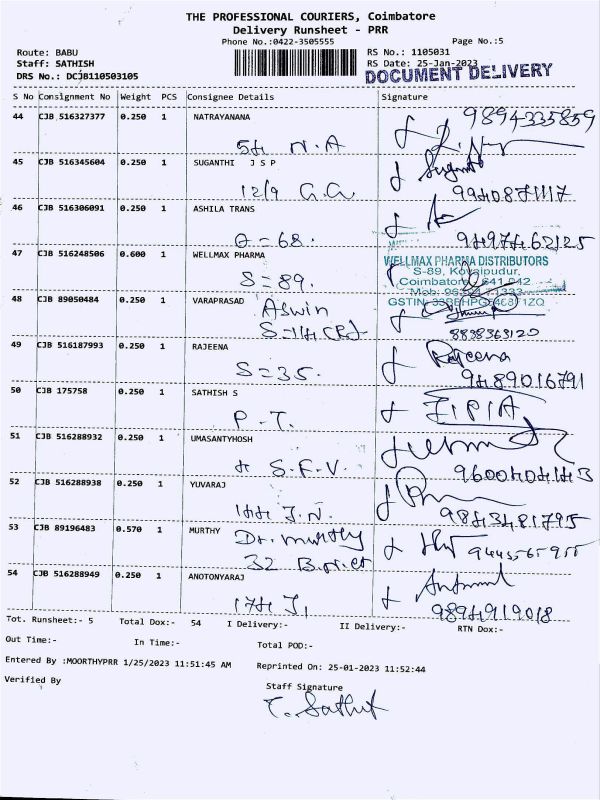 THE PROFESSIONAL COURIERS, Coimbatore
Delivery Runsheet - PRR
Phone No.:0422-3505555 Page No.:5
Route: BABU RS No.: 1105031
Staff: SATHISH RS Date: 25-Jan-2023
DRS No.: DCJB110503105 DOCUMENT DELIVERY
S No Consignment No Weight PCS Consignee Details Signature
44 CJB 516327377 0.250 1 NATRAYANANA 9894335859
54 N.A
45 CJB 516345604 0.250 1 SUGANTHI J S P
12/9 G.G
46 CJB 516306091 0.250 1 ASHILA TRANS
Q = 68.
47 CJB 516248506 0.600 1 WELLMAX PHARMA WELLMAX PHARMA DISTRIBUTORS
S = 89. S-89, Kovaipudur,
Coimbatore
48 CJB 89050484 0.250 1 VARAPRASAD Aswin
8838363120
49 CJB 516187993 0.250 1 RAJEENA Rajeena
S = 35. 9489016791
50 CJB 175758 0.250 1 SATHISH S
P.T.
51 CJB 516288932 0.250 1 UMASANTYHOSH
4 S.F.V. 9600404143
52 CJB 516288938 0.250 1 YUVARAJ
144 J.N. 9843481795
53 CJB 89196483 0.570 1 MURTHY Dr. Murthy
32
54 CJB 516288949 0.250 1 ANOTONYARAJ
174 J, 9894919018
Tot. Runsheet:- 5 Total Dox:- 54 I Delivery:- II Delivery:- RTN Dox:-
Out Time:- In Time:- Total POD:-
Entered By :MOORTHYPRR 1/25/2023 11:51:45 AM Reprinted On: 25-01-2023 11:52:44
Verified By Staff Signature